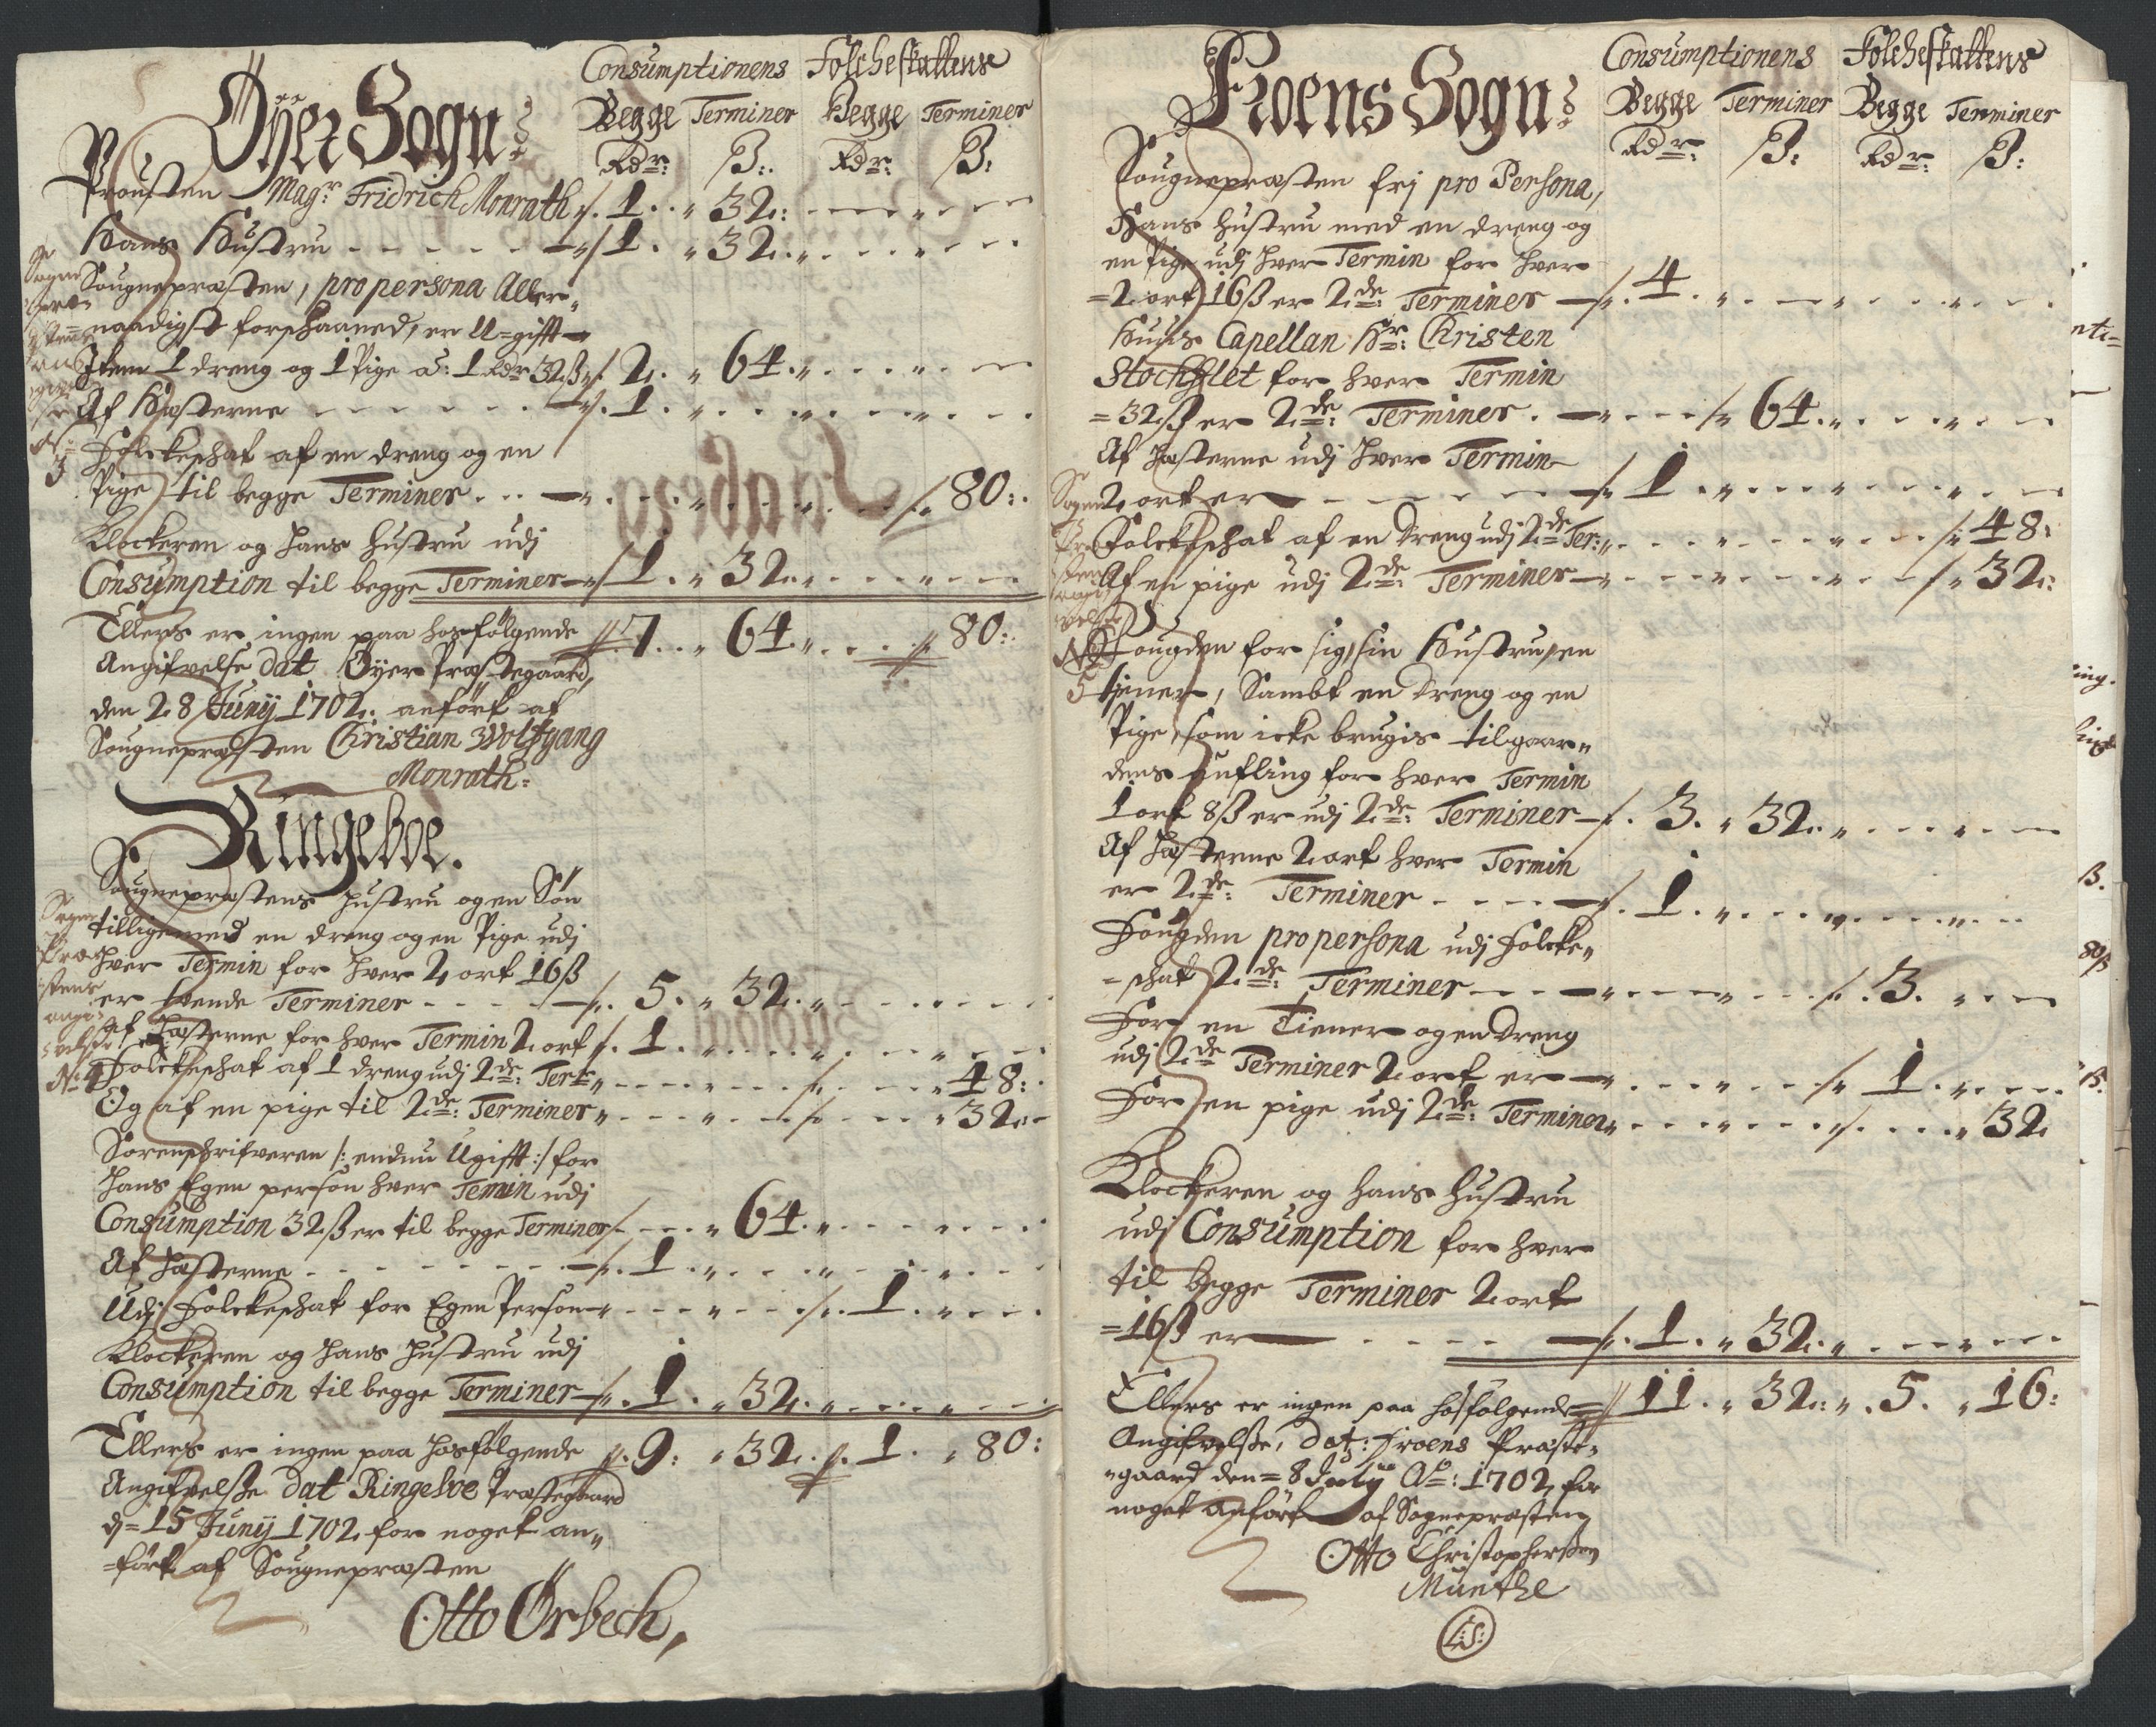 Consumptionens Folcheskattens
Öÿer Sogn:
Begge Terminer Begge Terminer
Rdr: ß: Rdr: ß:
Prousten Magr Fridrich Monrath 1. 32:
Hans Hustru 1. 32.
Sougnepræsten, pro persona Aller-
naadigst forschaaned, er U=gifft
Item 1 dreng og 1 Pige à: 1 Rdr 32ß 2. 64.
Af Hæsterne 1.
No 3
Folckeschat af en dreng og en
Pige til begge Terminer 80:
Klockeren og hans hustru udj
Consumption til begge Terminer 1. 32.
Ellers er ingen paa hosfölgende 7. 64. 80:
Angifvelse dat Öyer Præstegaard,
den 28 Junij 1702. anfört af
Sougnepræsten Christian Wolfgang
Monrath:
Ringeboe.
Sougnepræstens hustru og en Sön
tilligemed en dreng og en Pige udj
Sogne Præstens angifvelse No 4
hver Termin for hver 2 ort 16ß
er bende Terminer 5. 32.
af hæsterne for hver Termin 2 ort 1.
Folckeschat af 1 dreng udj 2de: Ter: 48:
Og af en pige til 2de: Terminer 32.
Sorenschrifveren /: endnu Ugifft :/ for
hans Egen person hver Temin udj
Consumption 32ß er til begge Terminer 64.
Af hæsterne 1.
Udj Folckeschat for Egen Person 1.
Klockeren og hans hustru udj
Consumption til begge Terminer 1. 32.
Ellers er ingen paa hosfölgende 9: 32. 1. 80:
Angifvelsse dat Ringeboe Præstegaard
d= 15 Junij 1702 for noget an-
=fört af Sougnepræsten
Otto Örbech,
Consumptionens Folcheskattens
Froens Sogn:
Begge Terminer Begge Terminer
Rdr: ß: Rdr: ß:
Sougnepræsten frj pro Persona,
Hans hustru med en dreng og
en Pige udj hver Termin for hver
=2 ort 16ß er 2de: Terminer 4.
Huus Capellan Hr: Christen
Stochflet for hver Termin
=32ß er 2de: Terminer. 64.
Af hæsterne udj hver Termin
2 ort er 1
Folckeschat af en dreng udj 2de Ter: 48:
Af en pige udj 2de: Terminer 32:
No 5
Fougden for sig, sin Hustru, en
tiener, Sambt en dreng og en
Pige, som icke brugis til gaar-
dens aufling for hver Termin
1 ort 8ß er udj 2de: Terminer 3. 32.
Af hæsterne 2 ort hver Termin
er 2de: Terminer 1.
Fougden pro persona udj Folcke-
=schat 2de: Terminer 3.
For en Tiener og en dreng
udj 2de Terminer 2 ort er 1.
For en pige udj 2de: Terminer 32
Klockeren og hans hustru
udj Consumption for hver
til begge Terminer 2 ort
=16ß er 1. 32.
Ellers er ingen paa hosfölgende 11. 32. 5. 16:
Angifvelsse, dat: Froens Præste-
gaard den= 8 July Ao: 1702, for
noget anfört af Sognepræsten
Otto Christophersen
Munthe
L:S: